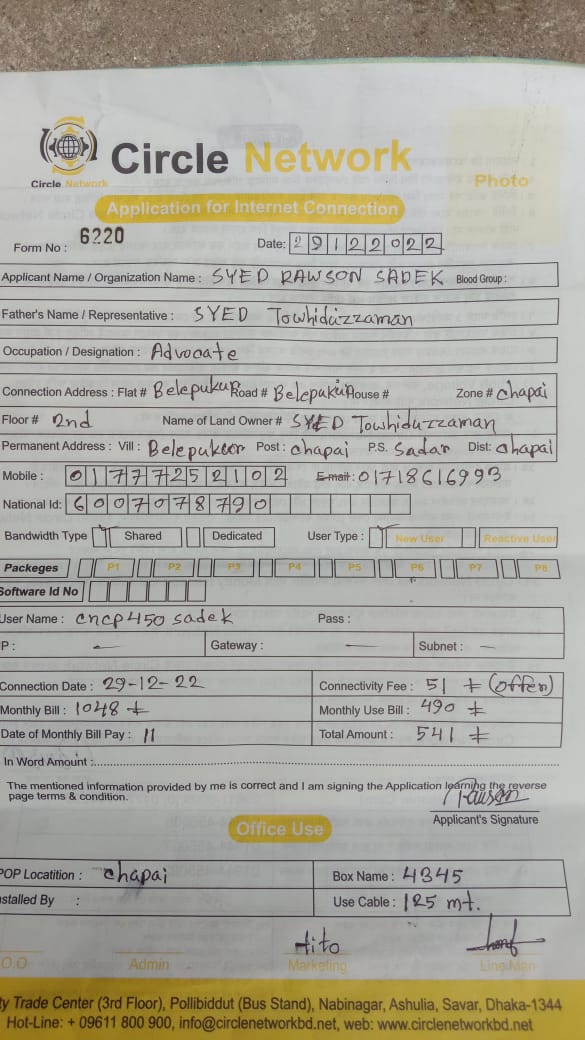 Circle Network
Circle Network
Photo
Application for Internet Connection
Form No : 6220
Date: 29122022
Applicant Name / Organization Name : SYED RAWSON SADEK Blood Group :
Father's Name / Representative : SYED Towhiduzzaman
Occupation / Designation : Advocate
Connection Address : Flat # Belepukur Road # Belepukur House # Zone # chapai
Floor # 2nd Name of Land Owner # SYED Towhiduzzaman
Permanent Address : Vill : Belepukur Post : chapai P.S. Sadar Dist: chapai
Mobile : 01777252102 E-mail : 01718616993
National Id: 6007078790
Bandwidth Type Shared Dedicated User Type : New User Reactive User
Packeges P1 P2 P3 P4 P5 P6 P7 P8
Software Id No
User Name : cncp450 sadek Pass :
P : — Gateway : — Subnet : —
Connection Date : 29-12-22 Connectivity Fee : 51 ৳ (offer)
Monthly Bill : 1048 ৳ Monthly Use Bill : 490 ৳
Date of Monthly Bill Pay : 11 Total Amount : 541 ৳
In Word Amount :
The mentioned information provided by me is correct and I am signing the Application learning the reverse
page terms & condition.
Rawson
Applicant's Signature
Office Use
POP Locatition : chapai Box Name : 4345
nstalled By : Use Cable : 125 mt.
tito
O.O Admin Marketing Line Man
ty Trade Center (3rd Floor), Pollibiddut (Bus Stand), Nabinagar, Ashulia, Savar, Dhaka-1344
Hot-Line: + 09611 800 900, info@circlenetworkbd.net, web: www.circlenetworkbd.net